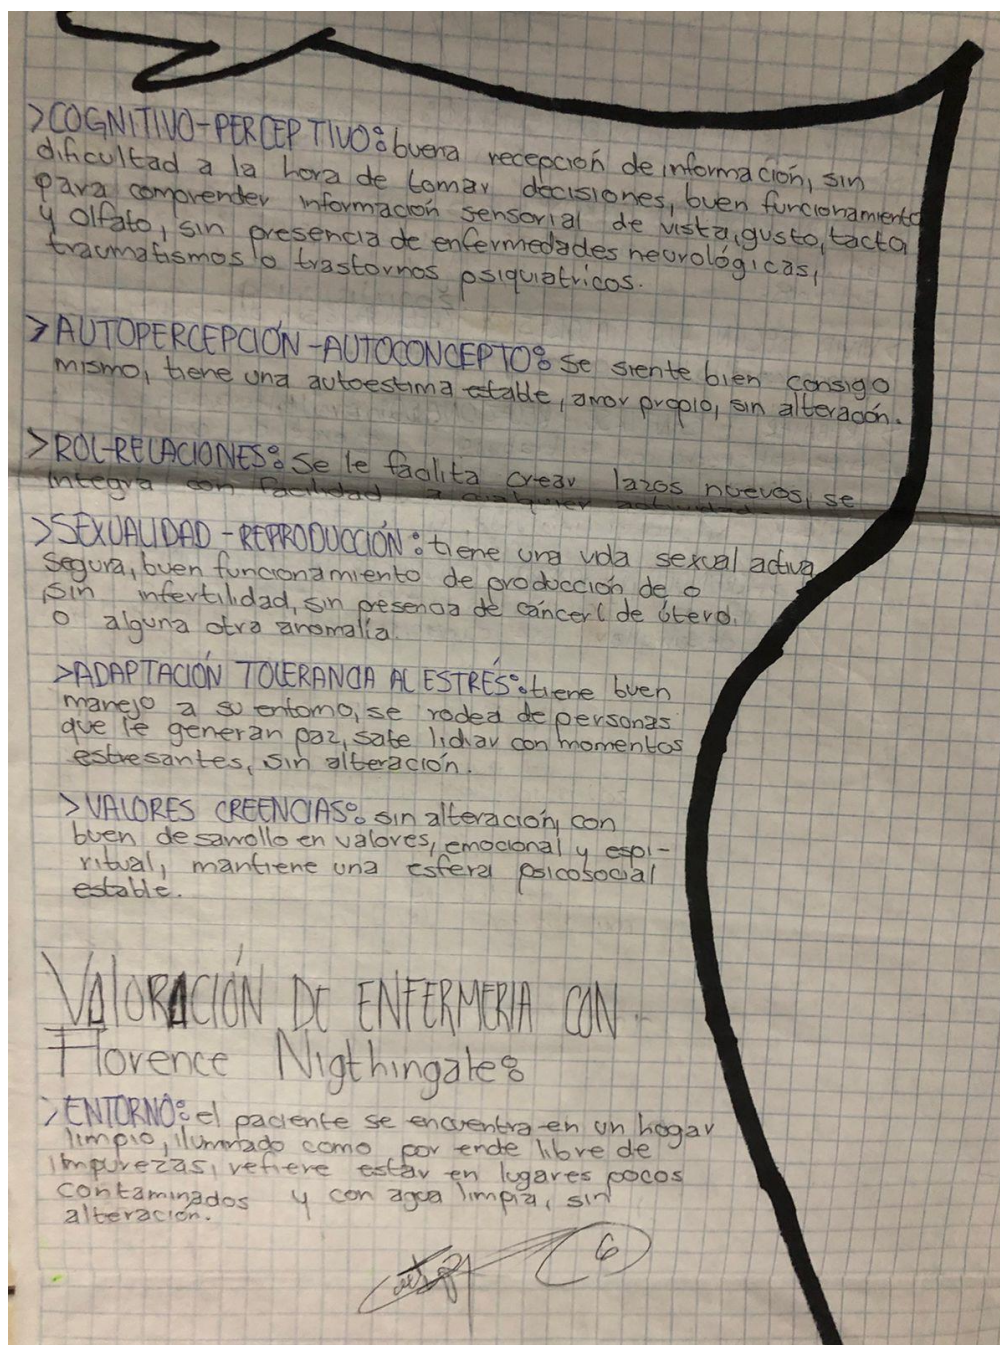 >COGNITIVO-PERCEPTIVO: buena recepción de información, sin
dificultad a la hora de tomar decisiones, buen funcionamiento
para comprender información sensorial de vista, gusto, tacto
y olfato, sin presencia de enfermedades neurológicas,
traumatismos o trastornos psiquiatricos.
>AUTOPERCEPCIÓN-AUTOCONCEPTO: Se siente bien consigo
mismo, tiene una autoestima estable, amor propio, sin alteración.
>ROL-RELACIONES: Se le facilita crear lazos nuevos, se
integra con facilidad a cualquier actividad
>SEXUALIDAD-REPRODUCCIÓN: tiene una vida sexual activa
segura, buen funcionamiento de producción de o
sin infertilidad, sin presencia de cáncer de útero.
o alguna otra anomalía
>ADAPTACIÓN TOLERANCIA AL ESTRÉS: tiene buen
manejo a su entorno, se rodea de personas
que le generan paz, sabe lidiar con momentos
estresantes, sin alteración.
>VALORES CREENCIAS: sin alteración, con
buen desarrollo en valores, emocional y espi-
ritual, mantiene una esfera psicosocial
estable.
VALORACIÓN DE ENFERMERIA CON
Florence Nigthingale:
>ENTORNO: el paciente se encuentra en un hogar
limpio, iluminado como por ende libre de
impurezas, refiere estar en lugares pocos
contaminados y con agua limpia, sin
alteración.
6